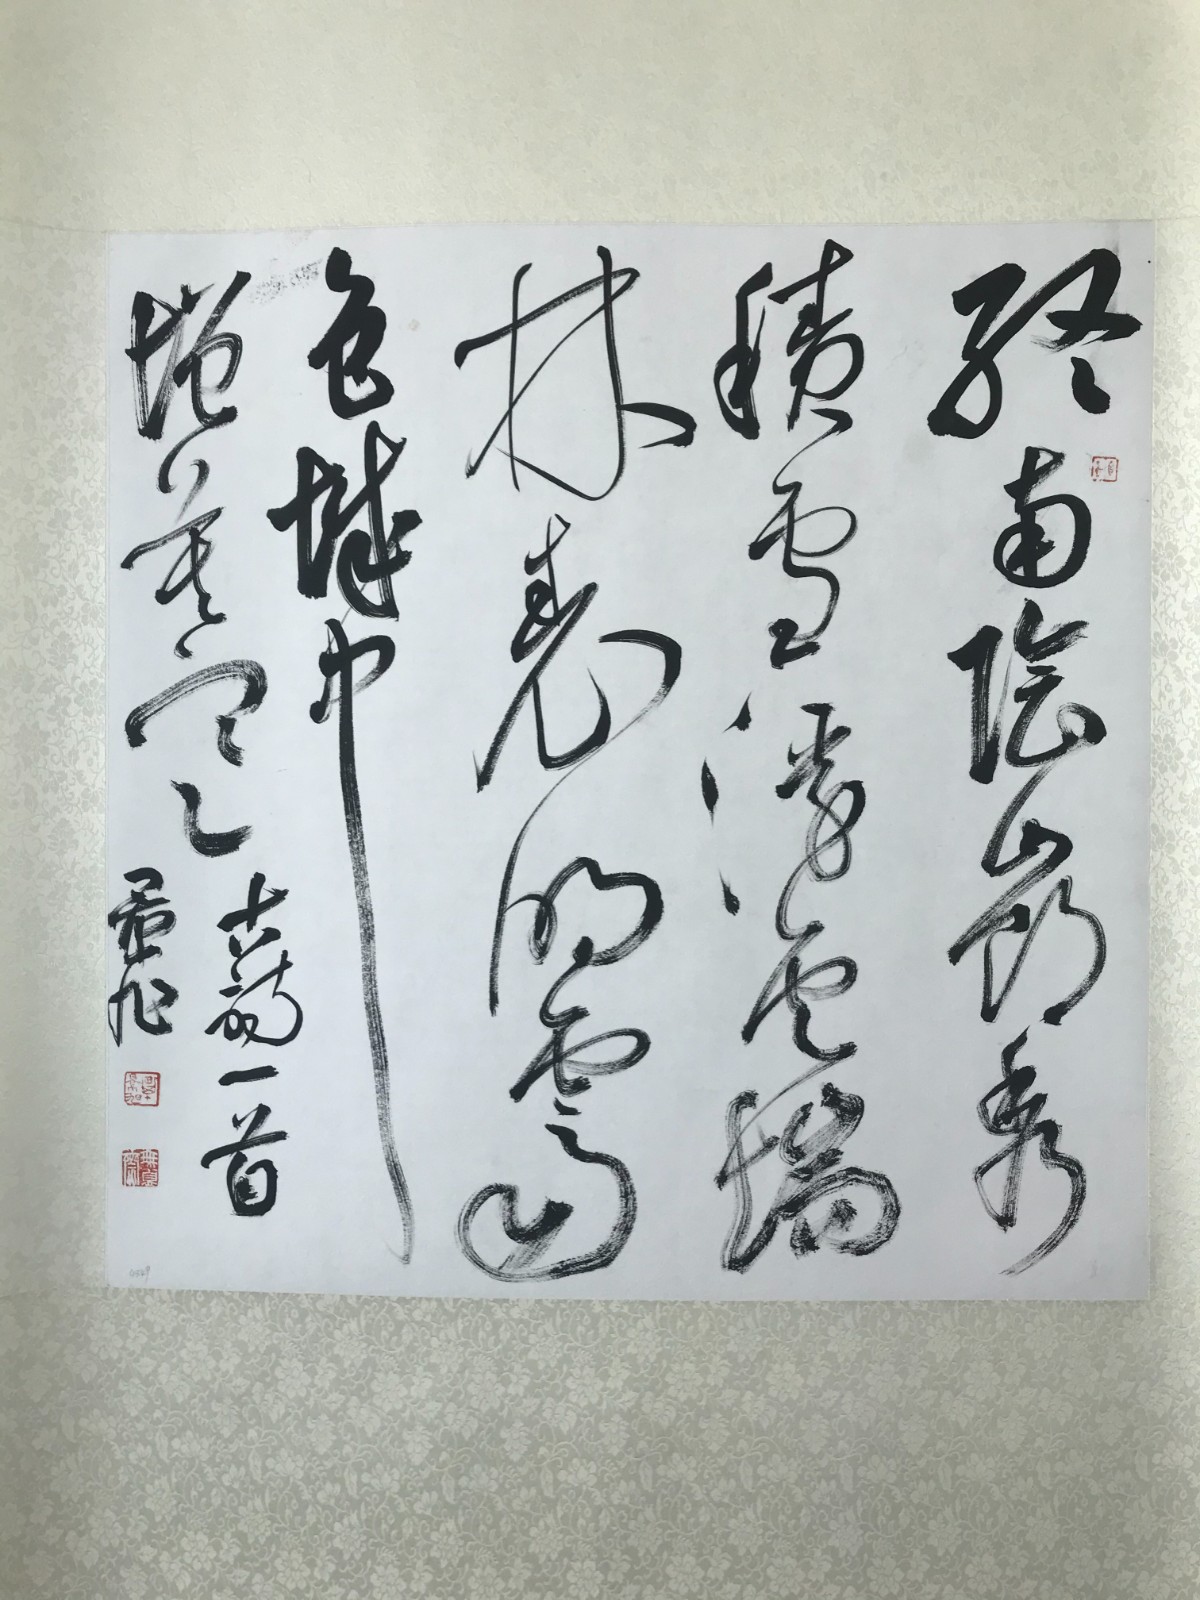 終南陰嶺秀
積雪浮雲端
林表明霽
色城中
增暮寒
古詩一首